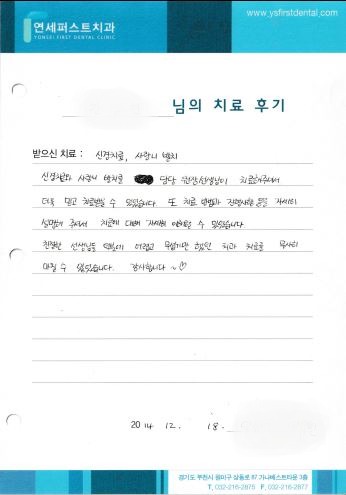 연세퍼스트치과
YONSEI FIRST DENTAL CLINIC
www.ysfirstdental.com
님의 치료 후기
받으신 치료 : 신경치료, 사랑니 발치
신경치료와 사랑니 발치를 담당 원장선생님이 치료해주셔서
더욱 믿고 치료받을 수 있었습니다. 또 치료 방법과 진행사항 등을 자세히
설명해 주셔서 치료에 대해 자세히 이해할 수 있었습니다.
친절한 선생님들 덕분에 어렵고 무섭기만 했던 치과 치료를 무사히
마칠 수 있었습니다. 감사합니다 ~♡
2014. 12. 18.
경기도 부천시 원미구 상동로 87 가나베스트타운 3층
T. 032-216-2875 F. 032-216-2877